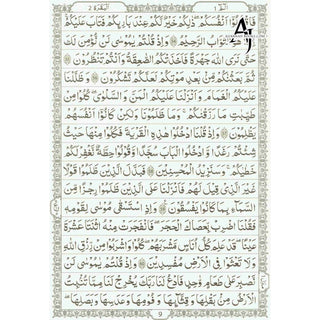 الٓمّٓ ١
البقرة ٢
فَاقْتُلُوْٓا اَنْفُسَكُمْ ؕ ذٰلِكُمْ خَيْرٌ لَّكُمْ عِنْدَ بَارِئِكُمْ ؕ فَتَابَ عَلَيْكُمْ ؕ
التَّوَّابُ الرَّحِيْمُ ۝ وَاِذْ قُلْتُمْ يٰمُوْسٰى لَنْ نُّؤْمِنَ لَكَ
حَتّٰى نَرَى اللّٰهَ جَهْرَةً فَاَخَذَتْكُمُ الصّٰعِقَةُ وَاَنْتُمْ تَنْظُرُوْنَ ۝
ثُمَّ بَعَثْنٰكُمْ مِّنْۢ بَعْدِ مَوْتِكُمْ لَعَلَّكُمْ تَشْكُرُوْنَ ۝ وَظَلَّلْنَا
عَلَيْكُمُ الْغَمَامَ وَاَنْزَلْنَا عَلَيْكُمُ الْمَنَّ وَالسَّلْوٰى ؕ كُلُوْا مِنْ
طَيِّبٰتِ مَا رَزَقْنٰكُمْ ؕ وَمَا ظَلَمُوْنَا وَلٰكِنْ كَانُوْٓا اَنْفُسَهُمْ
يَظْلِمُوْنَ ۝ وَاِذْ قُلْنَا ادْخُلُوْا هٰذِهِ الْقَرْيَةَ فَكُلُوْا مِنْهَا حَيْثُ
شِئْتُمْ رَغَدًا وَّادْخُلُوا الْبَابَ سُجَّدًا وَّقُوْلُوْا حِطَّةٌ نَّغْفِرْ لَكُمْ
خَطٰيٰكُمْ ؕ وَسَنَزِيْدُ الْمُحْسِنِيْنَ ۝ فَبَدَّلَ الَّذِيْنَ ظَلَمُوْا قَوْلًا
غَيْرَ الَّذِيْ قِيْلَ لَهُمْ فَاَنْزَلْنَا عَلَى الَّذِيْنَ ظَلَمُوْا رِجْزًا مِّنَ
السَّمَآءِ بِمَا كَانُوْا يَفْسُقُوْنَ ۝ وَاِذِ اسْتَسْقٰى مُوْسٰى لِقَوْمِهٖ
فَقُلْنَا اضْرِبْ بِّعَصَاكَ الْحَجَرَ ؕ فَانْفَجَرَتْ مِنْهُ اثْنَتَا عَشْرَةَ
عَيْنًا ؕ قَدْ عَلِمَ كُلُّ اُنَاسٍ مَّشْرَبَهُمْ ؕ كُلُوْا وَاشْرَبُوْا مِنْ رِّزْقِ اللّٰهِ
وَلَا تَعْثَوْا فِى الْاَرْضِ مُفْسِدِيْنَ ۝ وَاِذْ قُلْتُمْ يٰمُوْسٰى لَنْ
نَّصْبِرَ عَلٰى طَعَامٍ وَّاحِدٍ فَادْعُ لَنَا رَبَّكَ يُخْرِجْ لَنَا مِمَّا تُنْۢبِتُ
الْاَرْضُ مِنْۢ بَقْلِهَا وَقِثَّآئِهَا وَفُوْمِهَا وَعَدَسِهَا وَبَصَلِهَا ؕ
9